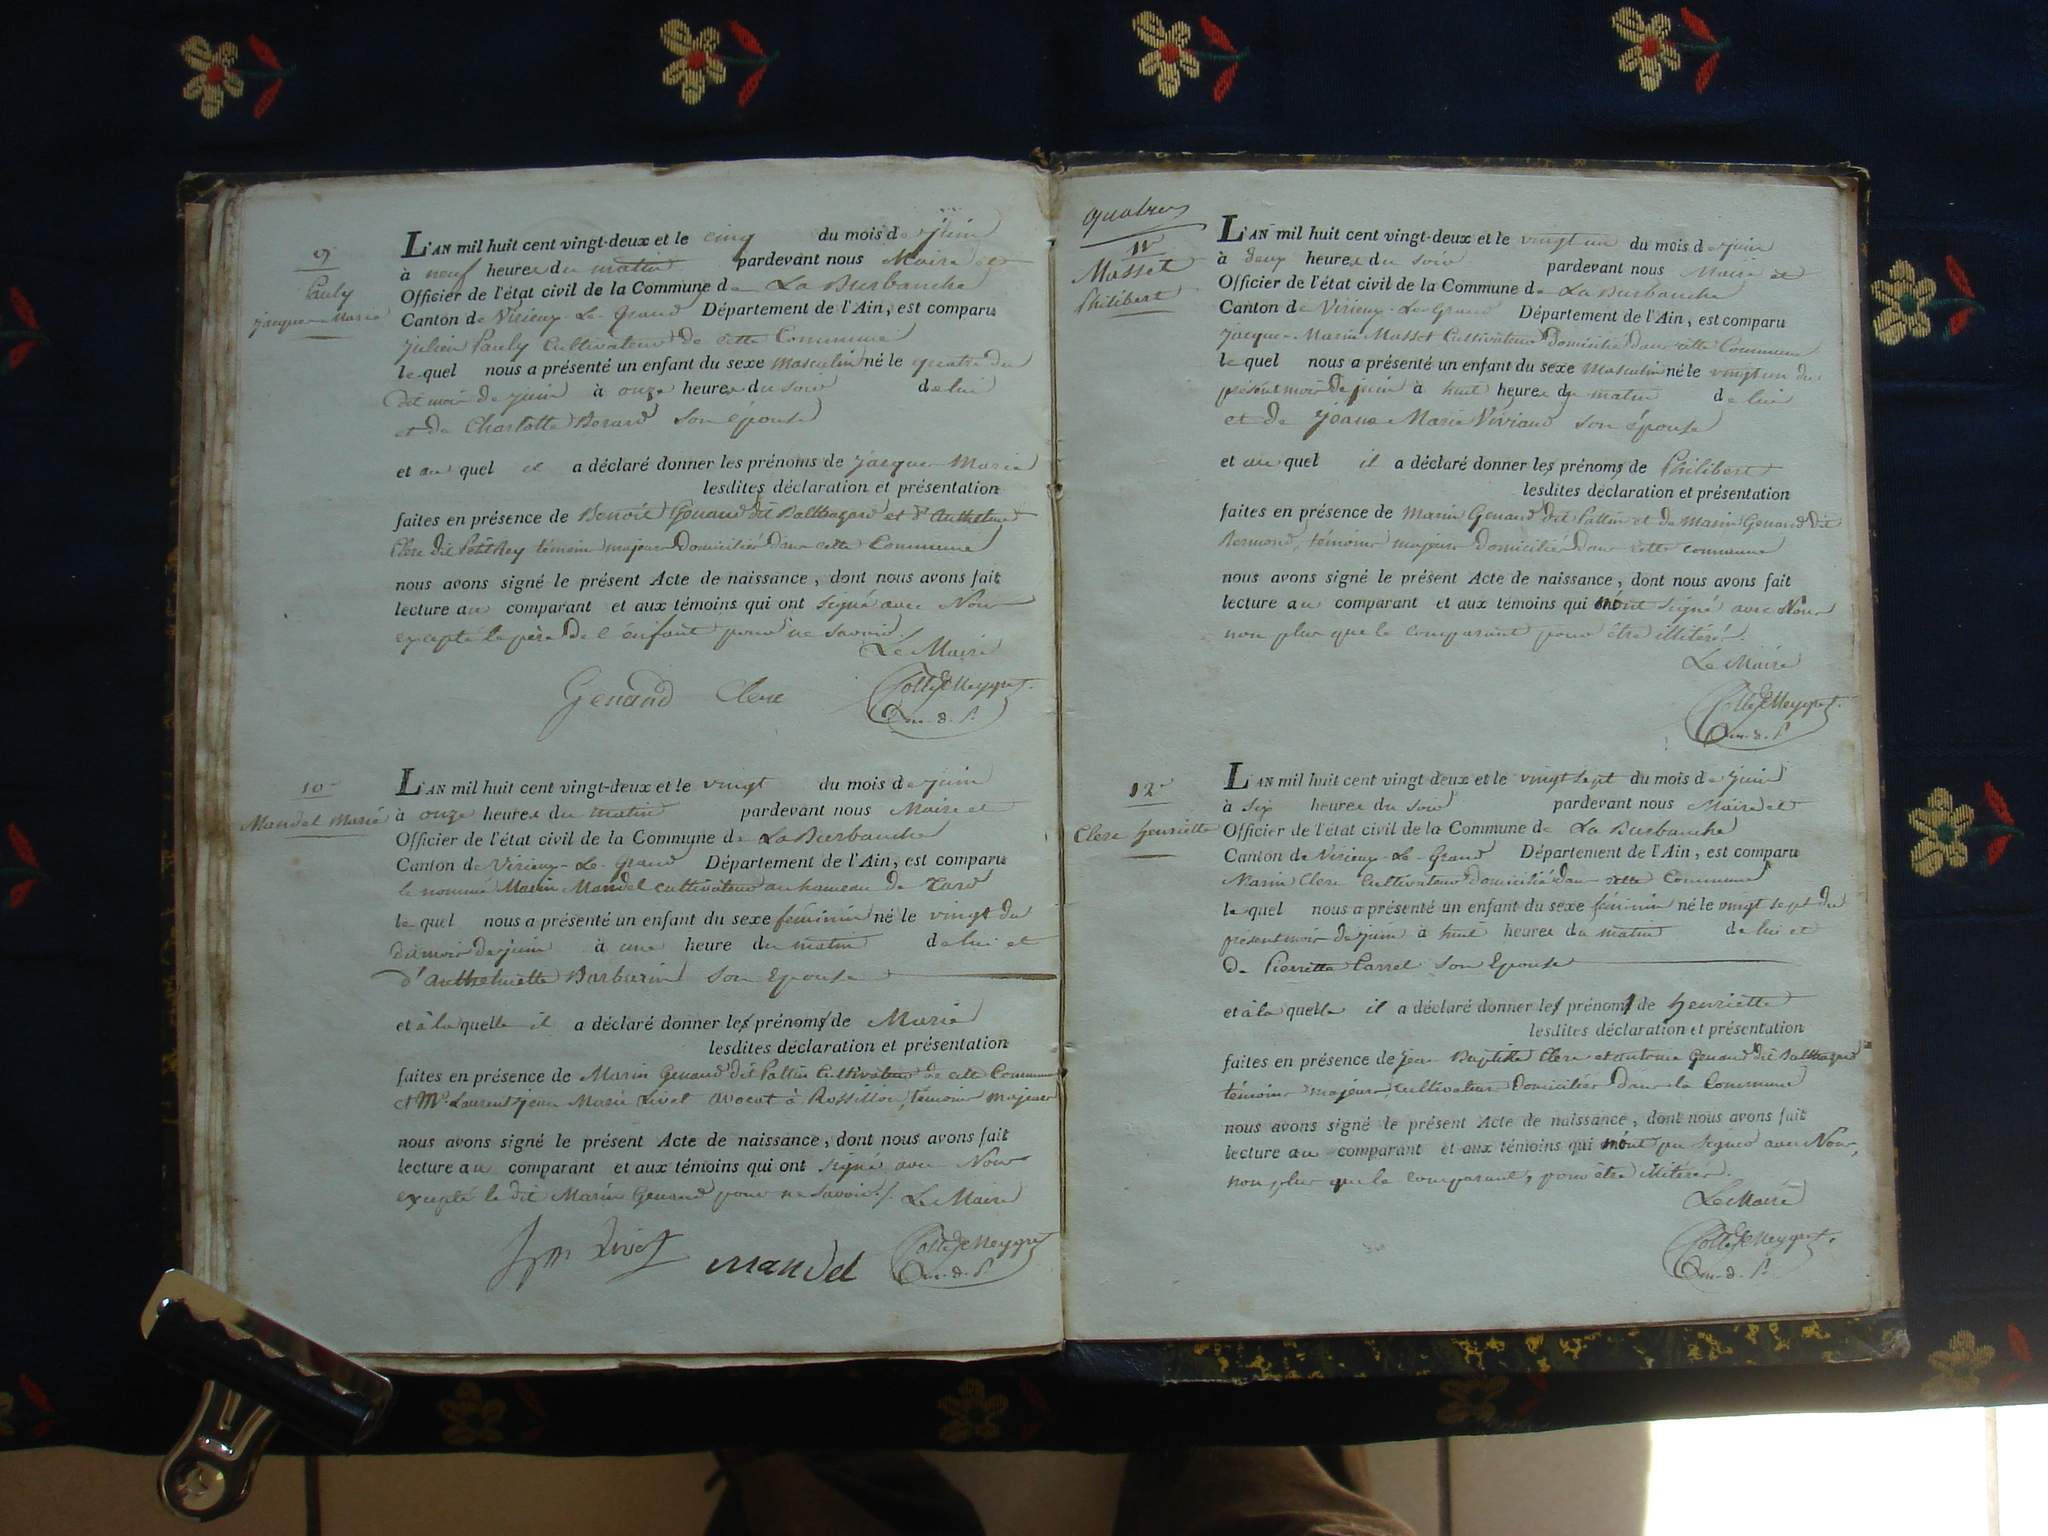 9
Pauly
jacques Marie
L'AN mil huit cent vingt-deux et le cinq du mois de juin
à neuf heures du matin pardevant nous Maire et
Officier de l'état civil de la Commune de La Burbanche
Canton de Virieux-Le-Grand Département de l'Ain, est comparu
Julien Pauly Cultivateur de cette Commune
le quel nous a présenté un enfant du sexe masculin né le quatre du
dit mois de juin à onze heures du soir de lui
et de Charlotte Berard son épouse
et au quel il a déclaré donner les prénoms de jacques Marie
lesdites déclaration et présentation
faites en présence de Benoit Genaud dit Balthazard et d'Anthelme
Clerc dit Petit Rey témoins majeurs domiciliés dans cette Commune
nous avons signé le présent Acte de naissance, dont nous avons fait
lecture au comparant et aux témoins qui ont signé avec Nous
excepté le père de l'enfant pour ne savoir.
Le Maire
Genand Clerc
10
Mandel Marie
L'AN mil huit cent vingt-deux et le vingt du mois de juin
à onze heures du matin pardevant nous Maire et
Officier de l'état civil de la Commune de La Burbanche
Canton de Virieux-Le-grand Département de l'Ain, est comparu
le nommé Marin Mandel cultivateur au hameau de
le quel nous a présenté un enfant du sexe féminin né le vingt du
dit mois de juin à une heure du matin de lui et
d'Anthelmette Barbarin son Epouse
et à la quelle il a déclaré donner les prénoms de Marie
lesdites déclaration et présentation
faites en présence de Marin Genaud dit Pattin Cultivateur de cette Commune
et Mr. Laurent jean Marie Livet avocat à Rossillon, témoins majeurs
nous avons signé le présent Acte de naissance, dont nous avons fait
lecture au comparant et aux témoins qui ont signé avec Nous
excepté le dit Marin Genaud pour ne savoir. Le Maire
Livet Mandel
quatre
11
Masset
Philibert
L'AN mil huit cent vingt-deux et le vingt un du mois de juin
à deux heures du soir pardevant nous Maire et
Officier de l'état civil de la Commune de La Burbanche
Canton de Virieux-Le-Grand Département de l'Ain, est comparu
jacques-Marin Masset Cultivateur domicilié dans cette Commune
le quel nous a présenté un enfant du sexe Masculin né le vingt un du
présent mois de juin à huit heures du matin de lui
et de jeane Marie Viviand son épouse
et au quel il a déclaré donner les prénoms de Philibert
lesdites déclaration et présentation
faites en présence de Marin Genaud dit Pattin et de Marin Genaud dit
témoins majeurs domiciliés dans cette commune
nous avons signé le présent Acte de naissance, dont nous avons fait
lecture au comparant et aux témoins qui n'ont signé avec Nous
non plus que le comparant pour être illitérés.
Le Maire
12
Clerc henriette
L'AN mil huit cent vingt-deux et le vingt sept du mois de juin
à six heures du soir pardevant nous Maire et
Officier de l'état civil de la Commune de La Burbanche
Canton de Virieux-Le-Grand Département de l'Ain, est comparu
Marin Clerc Cultivateur domicilié dans cette Commune
le quel nous a présenté un enfant du sexe féminin né le vingt sept du
présent mois de juin à huit heures du matin de lui et
de Pierrette Carrel son Epouse
et à la quelle il a déclaré donner les prénoms de henriette
lesdites déclaration et présentation
faites en présence de jean Baptiste Clerc et antoine Genaud dit Balthazard
témoins majeurs, cultivateurs domiciliés dans la Commune
nous avons signé le présent Acte de naissance, dont nous avons fait
lecture au comparant et aux témoins qui n'ont pu signer avec Nous,
non plus que le comparant, pour être illitérés.
Le Maire